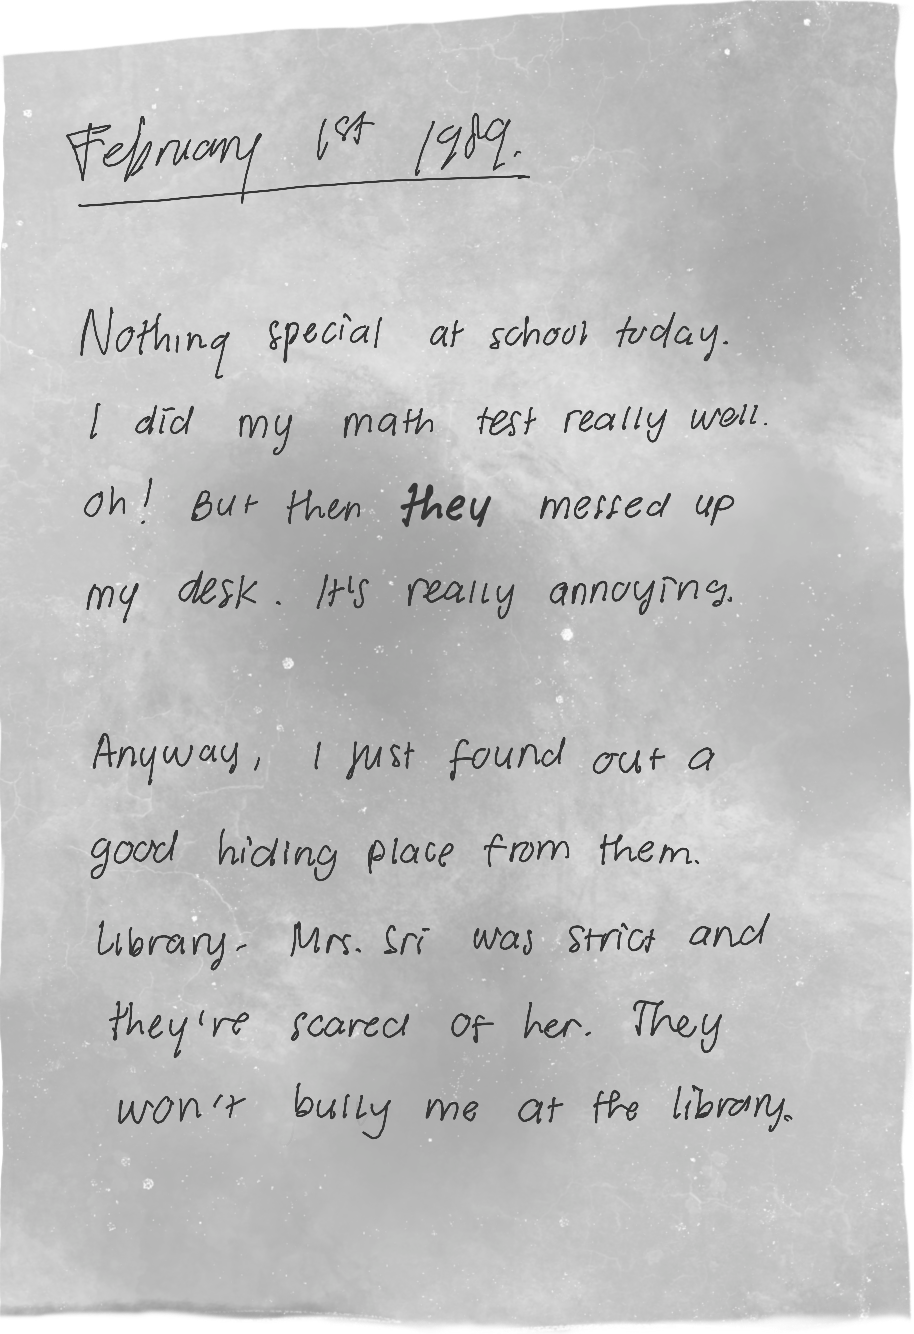 February 1st 1989.
Nothing special at school today.
I did my math test really well.
Oh! But then they messed up
my desk. It's really annoying.
Anyway, I just found out a
good hiding place from them.
Library. Mrs. Sri was strict and
they're scared of her. They
won't bully me at the library.